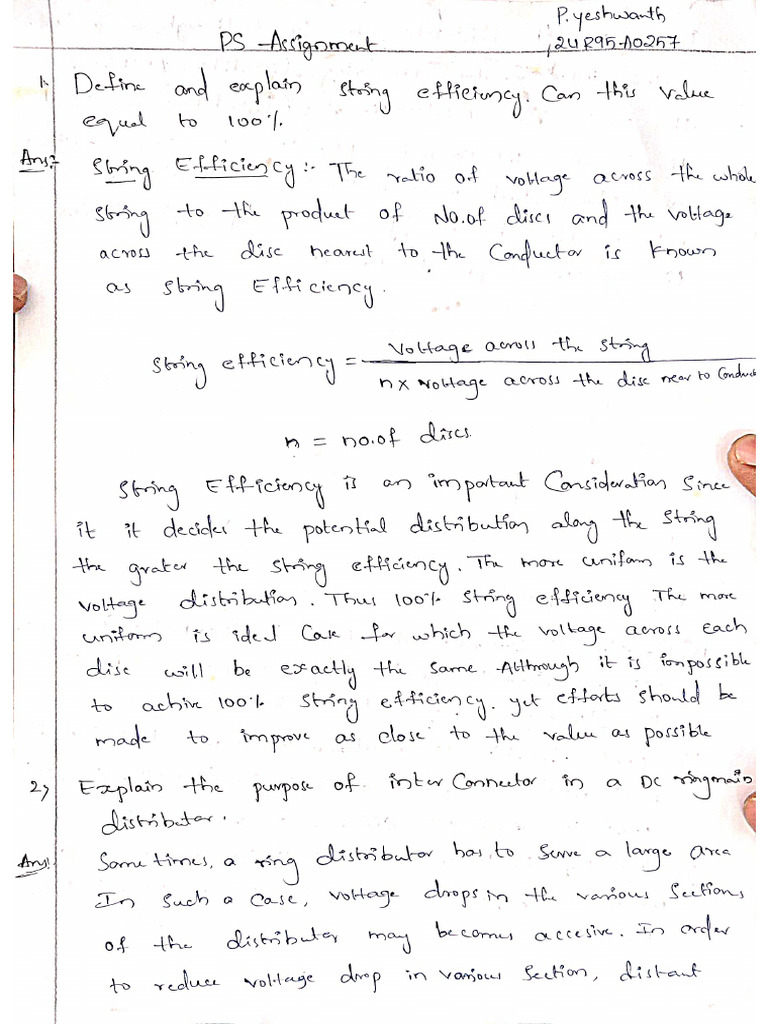 P.yeshwanth
PS -Assignment
24R95-A0257
1. Define and explain string efficiency. Can this value
equal to 100%.
Ans:- String Efficiency:- The ratio of voltage across the whole
string to the product of No.of discs and the voltage
across the disc nearest to the Conductor is known
as string Efficiency.
String efficiency = Voltage across the string
n x voltage across the disc near to Conduct
n = no.of discs.
String Efficiency is an important Consideration since
it it decides the potential distribution along the string
the grater the string efficiency. The more uniform is the
voltage distribution. Thus 100% string efficiency The more
uniform is ideal Case for which the voltage across each
disc will be exactly the same. Although it is impossible
to achive 100% string efficiency. yet efforts should be
made to improve as close to the value as possible
2) Explain the purpose of inter Connector in a DC ringmain
distributer.
Ans: Sometimes, a ring distributor has to serve a large area
In such a case, voltage drops in the various sections
of the distributer may becomes accesive. In order
to reduce voltage drop in various section, distant